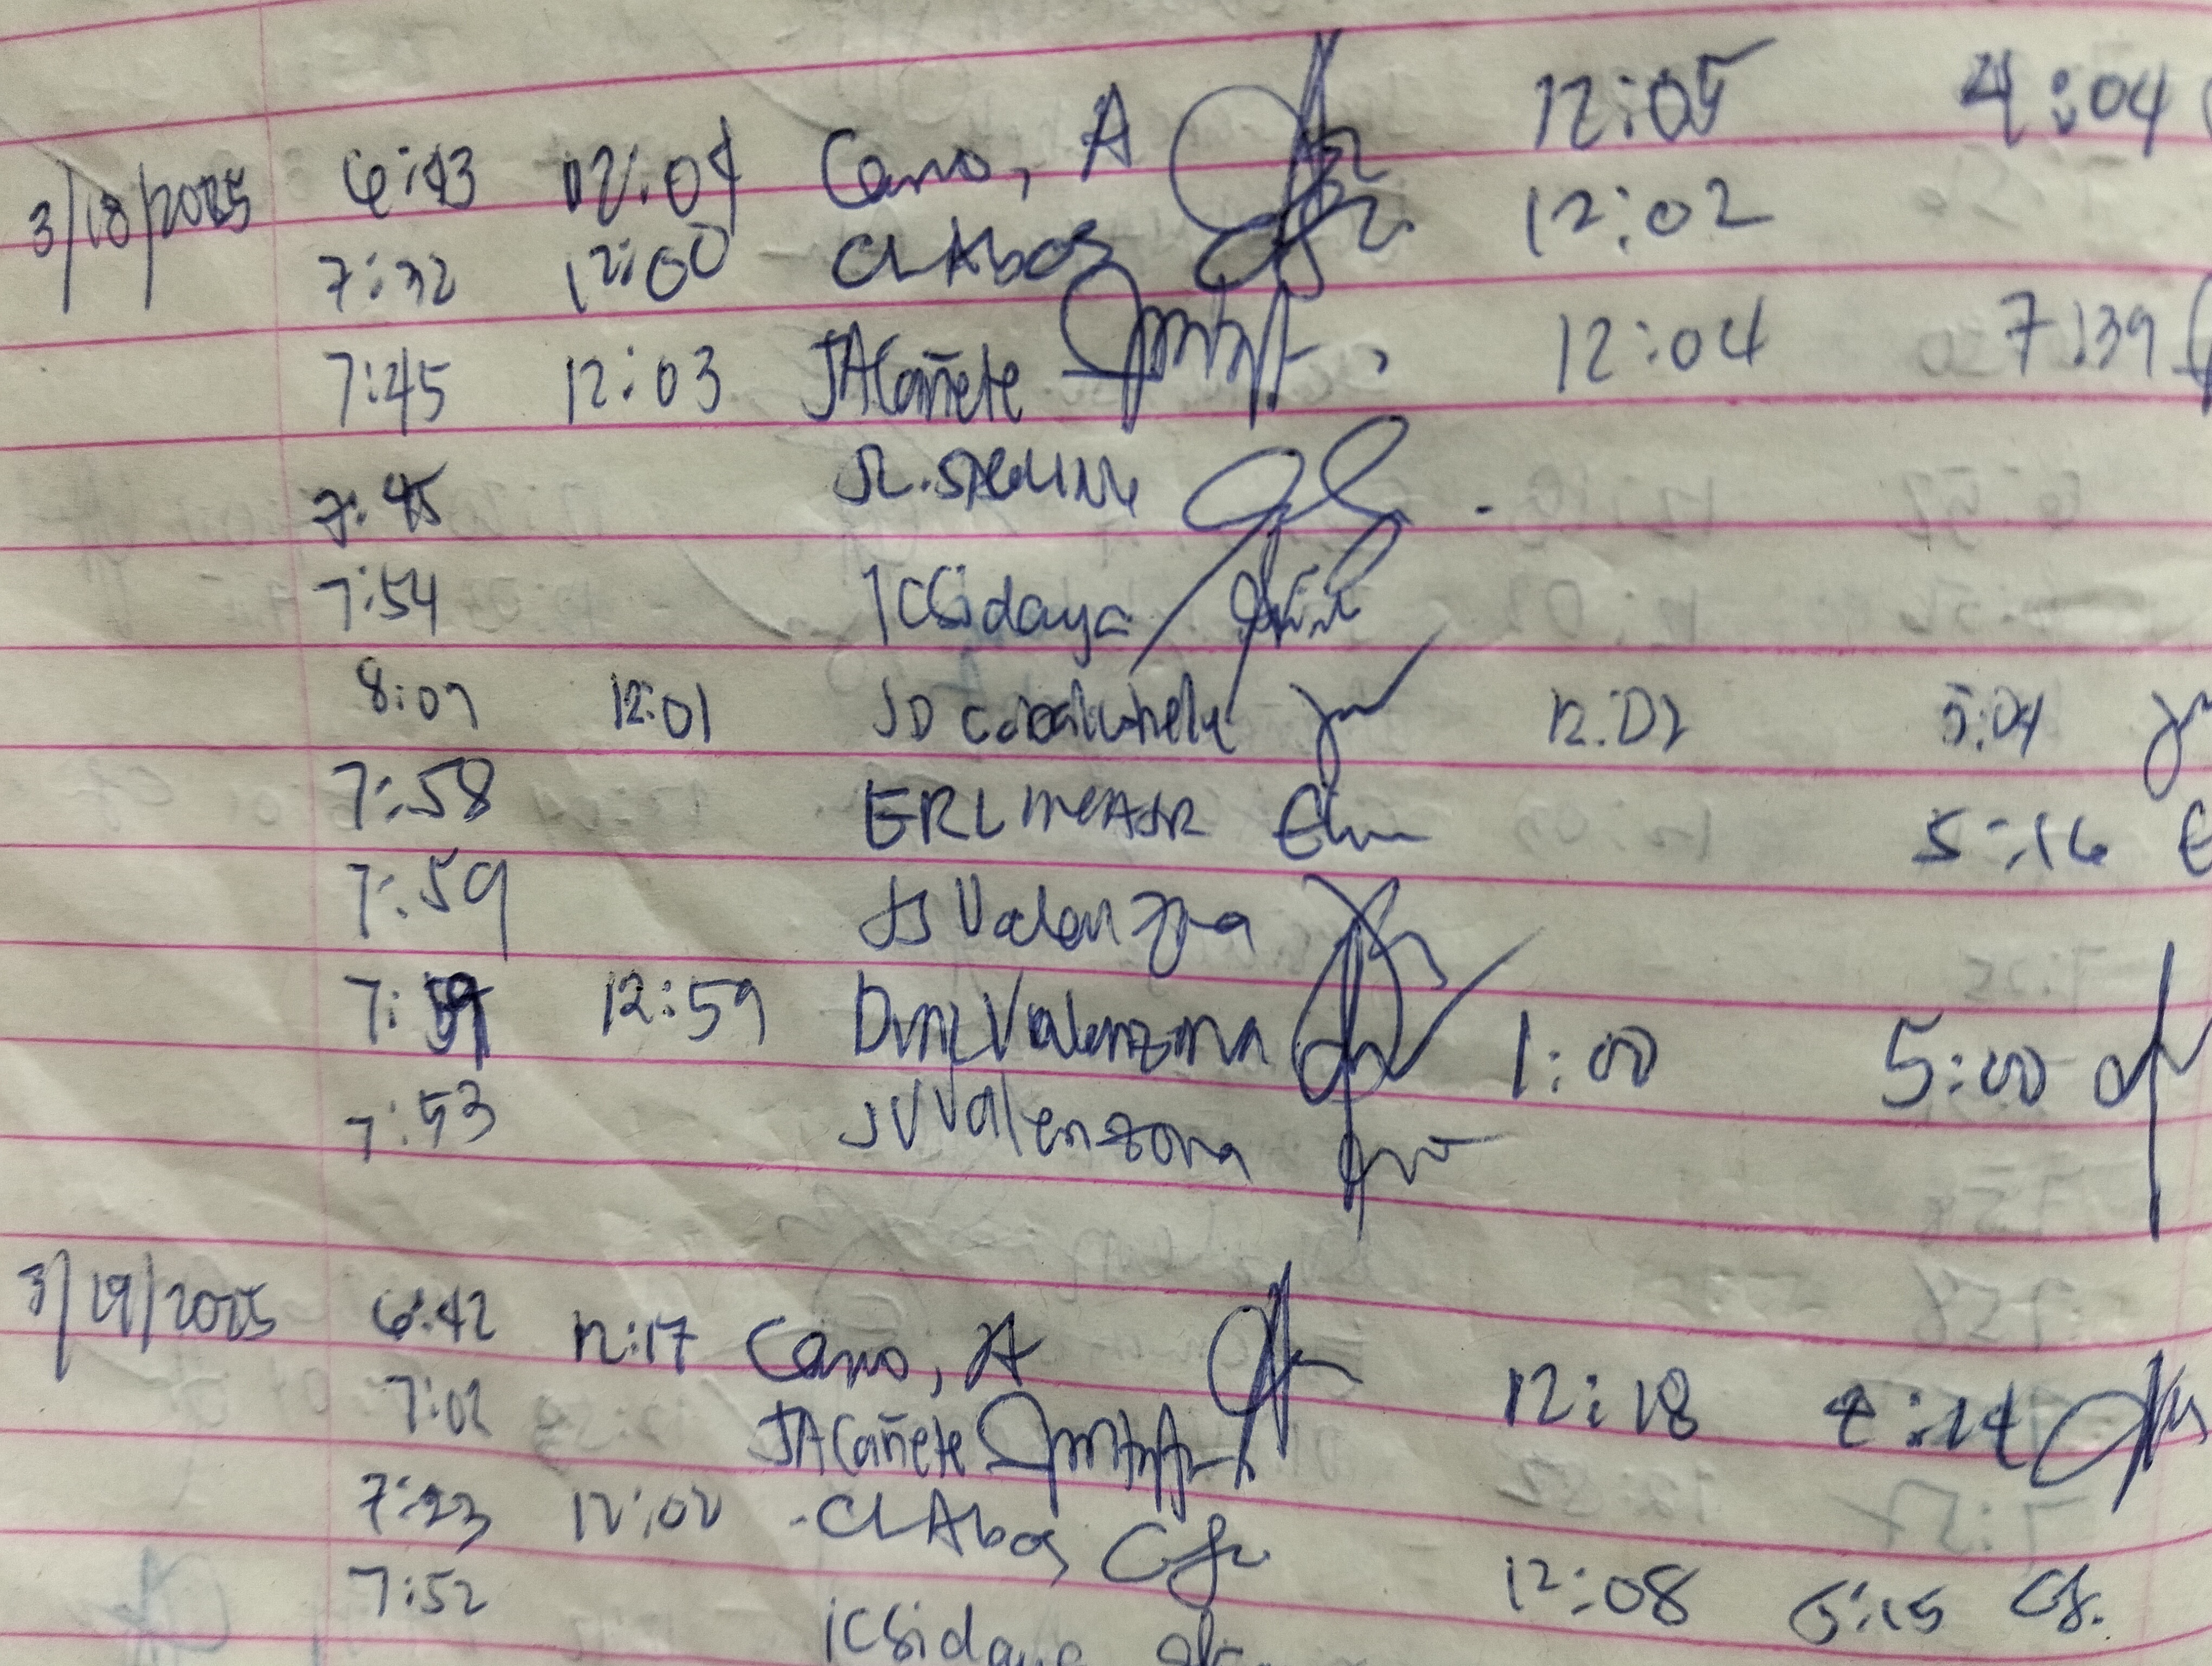 3/18/2025 6:43 12:04 Cano, A 12:05 4:04
7:32 12:00 CL Abos 12:02
7:45 12:03 JACañete 12:04 7:39
7:45
7:54 ICSidaya
8:07 12:01 JD 12:02 5:04
7:58 ERL 5:16
7:59 JS Valenzona
7:59 12:59 Valenzona 1:00 5:00
7:53 JVValenzona
3/19/2025 6:42 12:17 Cano, A 12:18
7:02 JACañete
7:23 12:02 CL Abos 12:08 5:15
7:52 ICSidaya